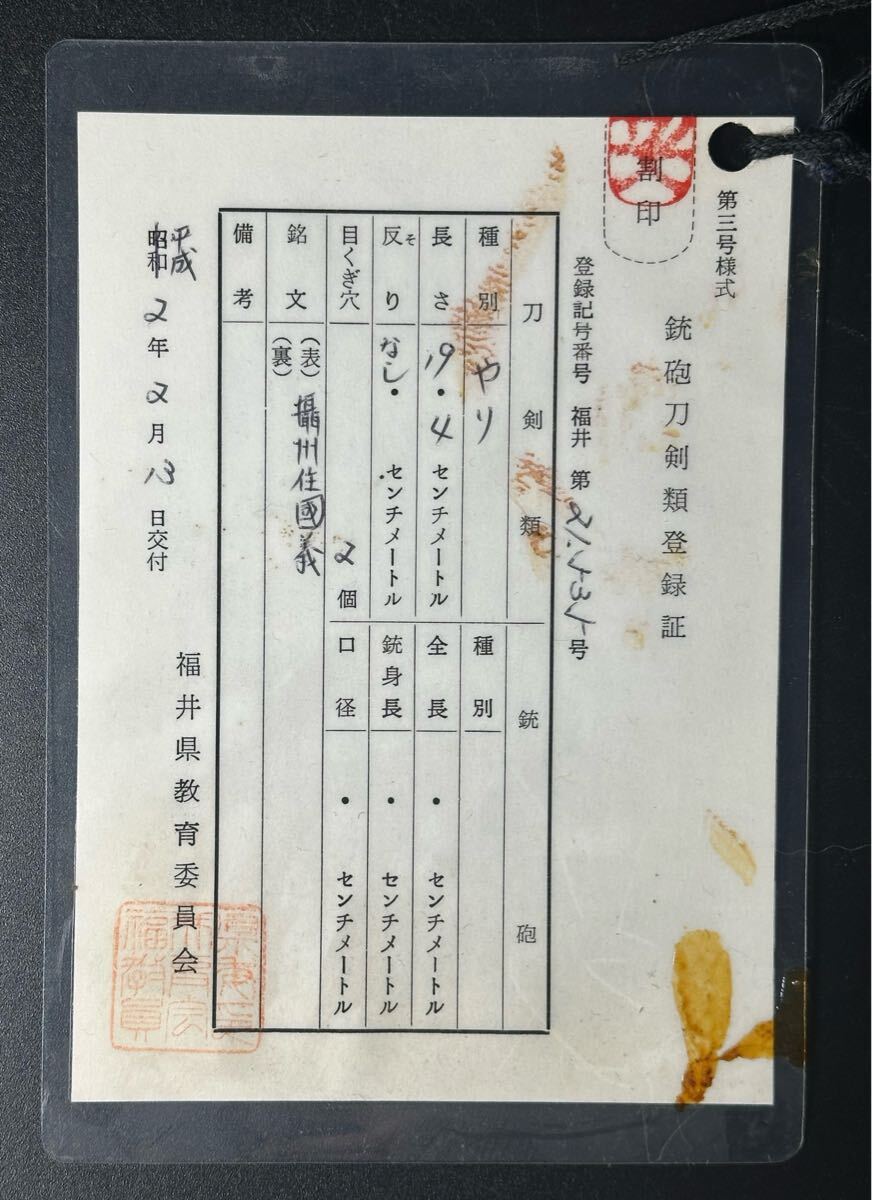 第三号様式
割印
銃砲刀剣類登録証
登録記号番号 福井 第 21.535 号
刀剣類
銃砲
種別 やり
種別
長さ 19・4 センチメートル
全長 ・ センチメートル
反り なし・ センチメートル
そ
銃身長 ・ センチメートル
目くぎ穴 2 個
口径 ・ センチメートル
銘文 (表)
(裏)
攝州住國義
備考
平成
昭和 2 年 2 月 13 日交付
福井県教育委員会